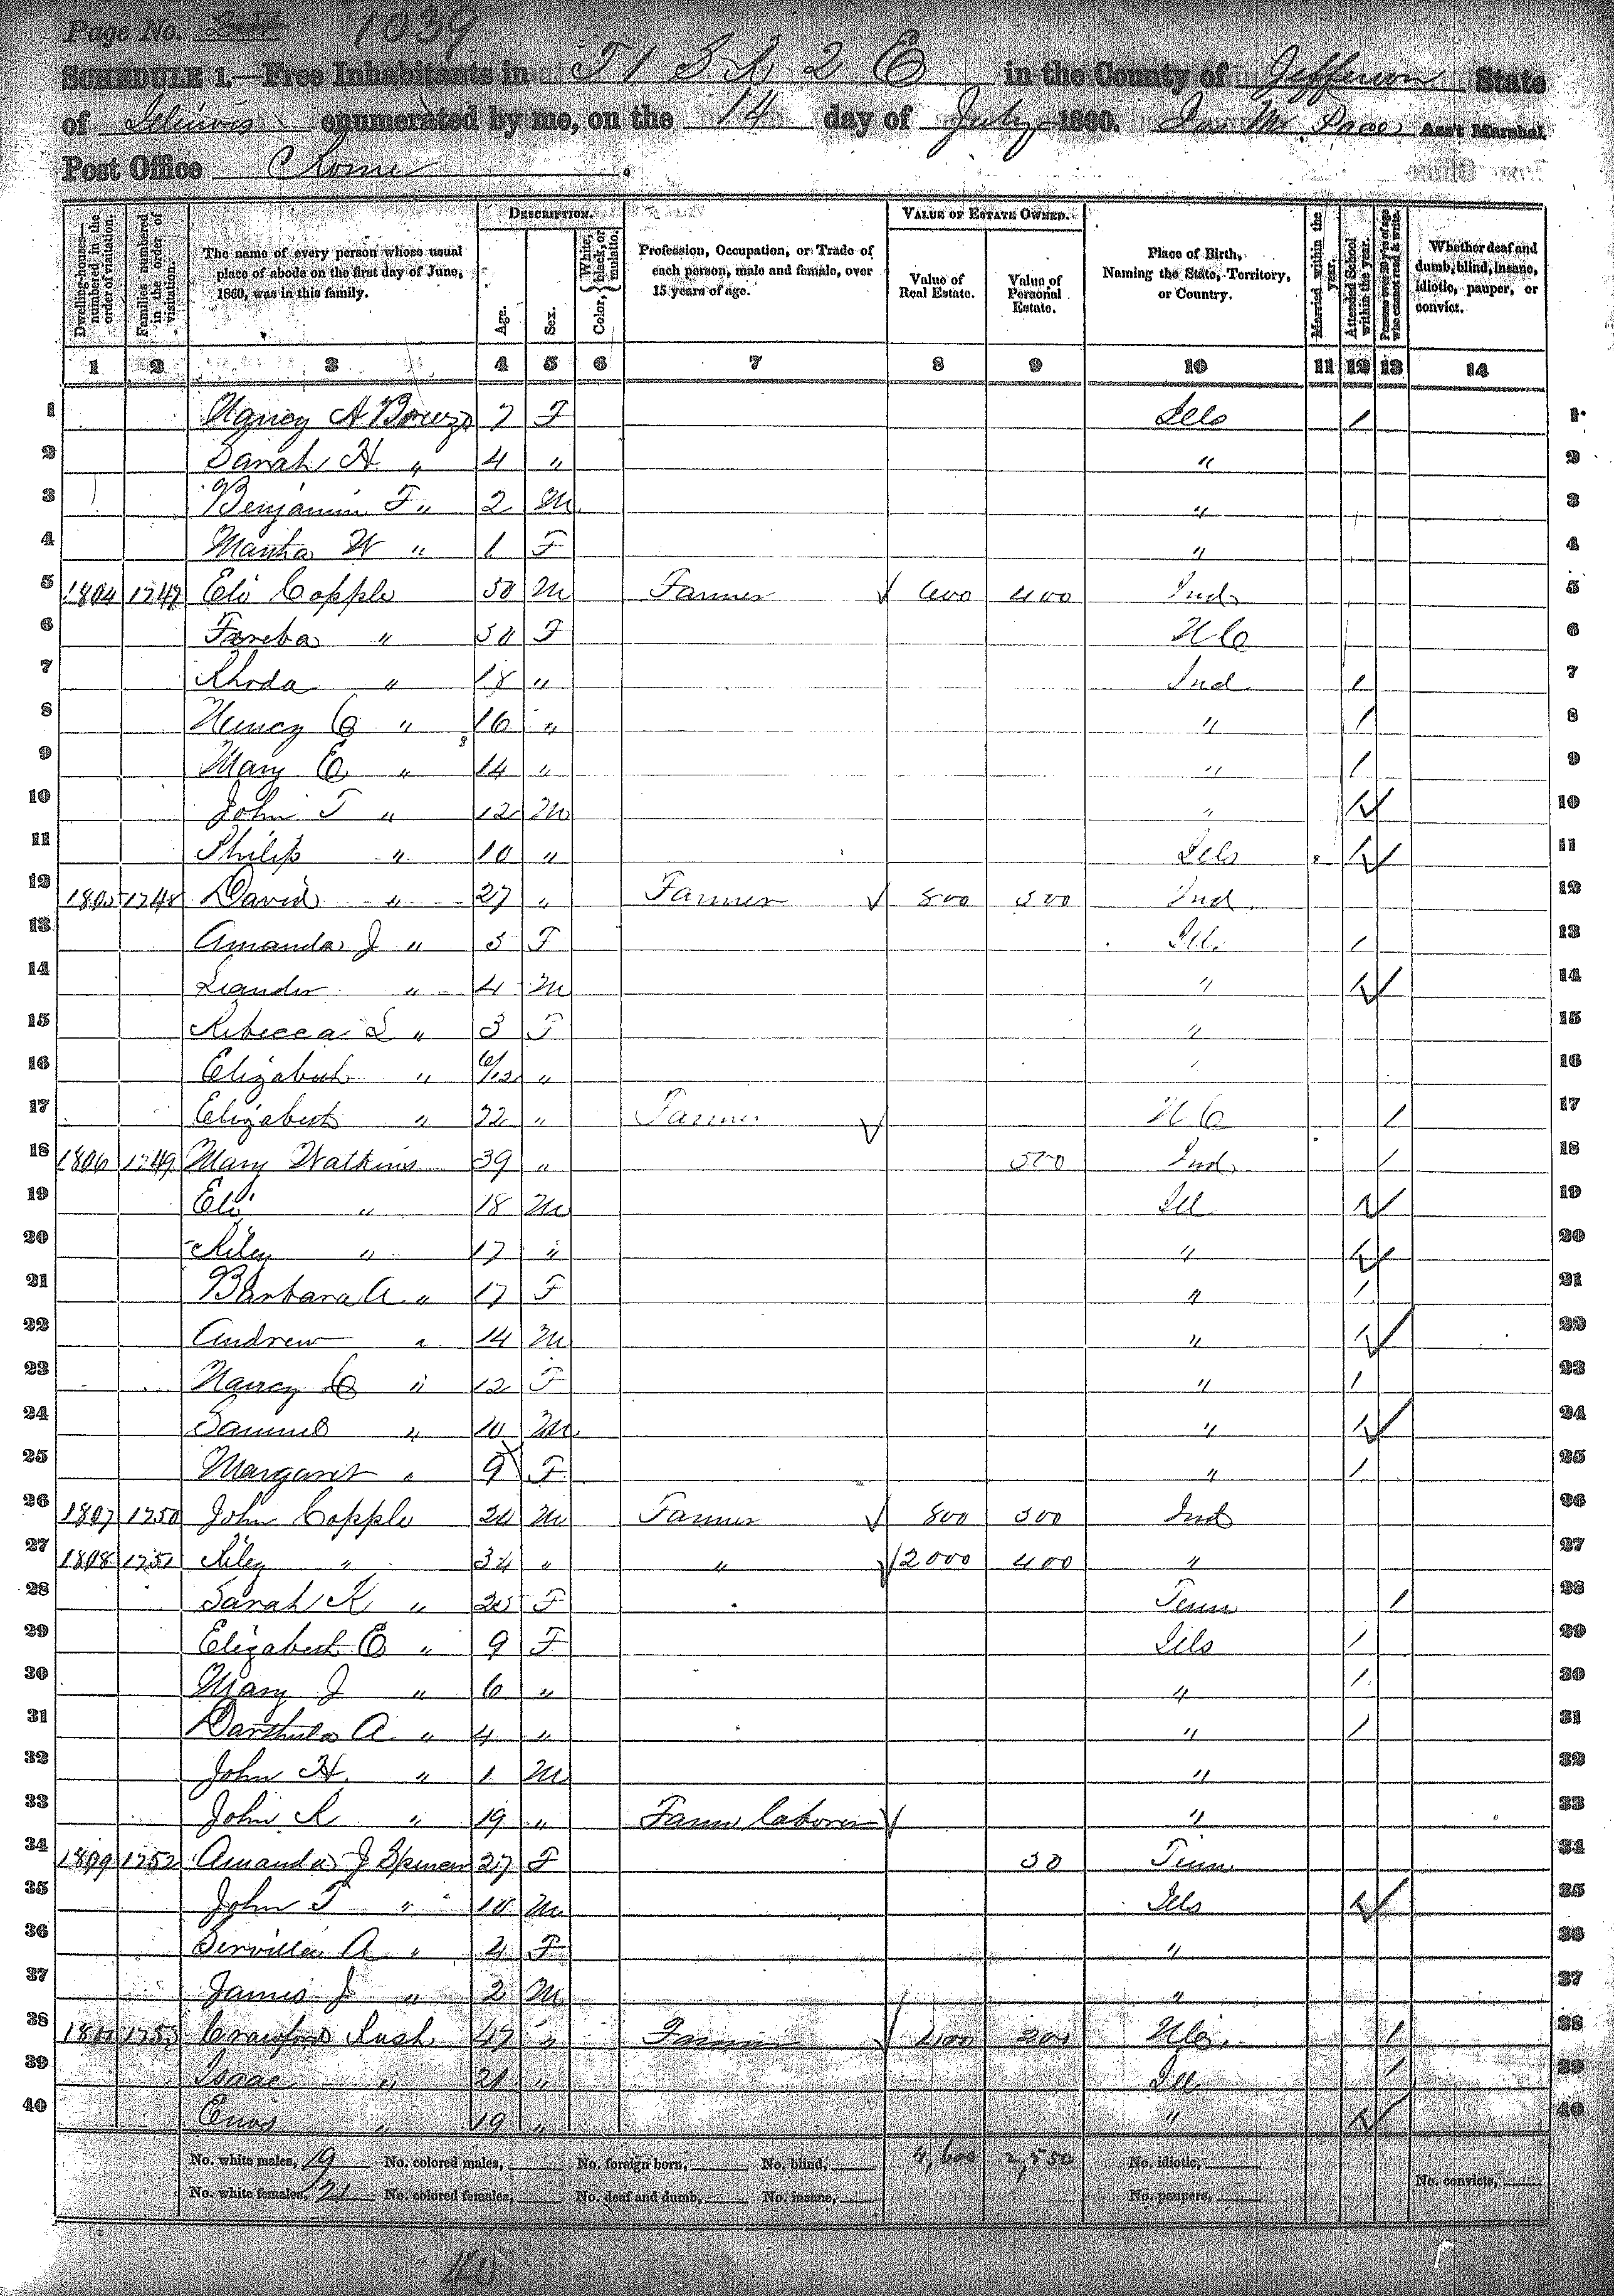 Page No. 1039
SCHEDULE 1.—Free Inhabitants in T 1 S R 2 E in the County of Jefferson State
of Illinois enumerated by me, on the 14 day of July 1860. Jas M. Pace Ass't Marshal.
Post Office Rome.
Dwelling-houses—numbered in the order of visitation. Families numbered in the order of visitation. The name of every person whose usual place of abode on the first day of June, 1860, was in this family. DESCRIPTION. Age. Sex. Color, {White, black, or mulatto. Profession, Occupation, or Trade of each person, male and female, over 15 years of age. VALUE OF ESTATE OWNED. Value of Real Estate. Value of Personal Estate. Place of Birth, Naming the State, Territory, or Country. Married within the year. Attended School within the year. Persons over 20 y'rs of age who cannot read & write. Whether deaf and dumb, blind, insane, idiotic, pauper, or convict.
1 2 3 4 5 6 7 8 9 10 11 12 13 14
1 Nancy A 7 F Ills / 1
2 Sarah H " 4 " " 2
3 Benjamin F " 2 M " 3
4 Martha W " 1 F " 4
5 1804 1247 Eli Copple 50 M Farmer 400 Ind 5
6 " F N C 6
7 Rhoda " 18 " Ind / 7
8 Nancy C " 16 " " / 8
9 Mary E " 14 " " / 9
10 John T " 12 M " / 10
11 Philip " 10 " Ills / 11
12 1805 1248 David " 27 " Farmer 800 Ind 12
13 Amanda J " 5 F Ill. / 13
14 Leander " 4 M " / 14
15 Rebecca L " 3 F " 15
16 Elizabeth " 6/12 " " 16
17 Elizabeth " " Farmer N C / 17
18 1806 1249 Mary Watkins 39 " 500 Ind / 18
19 Eli " 18 M Ill / 19
20 Riley " 17 " " / 20
21 Barbara A " 17 F " / 21
22 Andrew " 14 M " / 22
23 Nancy C " 12 F " / 23
24 Samuel " 10 M " / 24
25 Margaret " 9 F " / 25
26 1807 1250 John Copple M Farmer 800 300 Ind 26
27 1808 1251 Riley " 34 " " 2000 400 " 27
28 Sarah K " F Tenn / 28
29 Elizabeth E " 9 F Ills / 29
30 Mary J " 6 " " / 30
31 Darthula A " 4 " " / 31
32 John H. " 1 M " 32
33 John R " 19 " Farm laborer " 33
34 1809 1252 Amanda J 27 F Tenn 34
35 John T " 10 M Ills / 35
36 A " 4 F " 36
37 James J " 2 M " 37
38 1253 Crawford Rush 47 " Farmer 200 N C. / 38
39 Isaac " 21 " Ill / 39
40 Enos " 19 " " / 40
No. white males, 19 No. colored males, No. foreign born, No. blind, 4,600 2,550 No. idiotic,
No. white females, 21 No. colored females, No. deaf and dumb, No. insane, No. paupers, No. convicts,
40